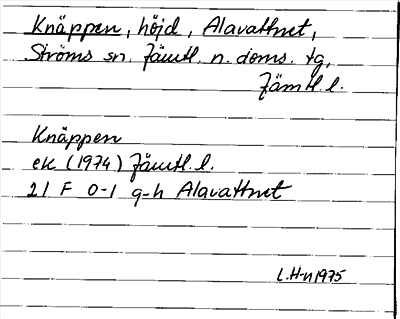 Knäppen, höjd, Alavattnet,
Ströms sn. Jämtl. n. doms. tg,
Jämtl. l.
Knäppen
ek. (1974) Jämtl. l.
21 F 0-1 g-h Alavattnet
L.H-n 1975